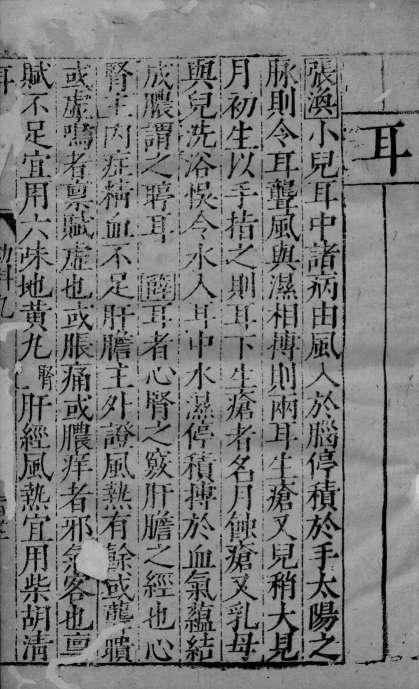 耳
張渙小兒耳中諸病由風入於腦停積於手太陽之
脉則令耳聾風與濕相搏則兩耳生瘡又兒稍大見
月初生以手指之則耳下生瘡者名月蝕瘡又乳母
與兒洗浴悞令水入耳中水濕停積搏於血氣蘊結
成膿謂之聤耳 薛耳者心腎之竅肝膽之經也心
腎主內症精血不足肝膽主外證風熱有餘或聾聵
或虛鳴者禀賦虛也或脹痛或膿痒者邪氣客也禀
賦不足宜用六味地黃丸腎肝經風熱宜用柴胡清
耳 幼科九